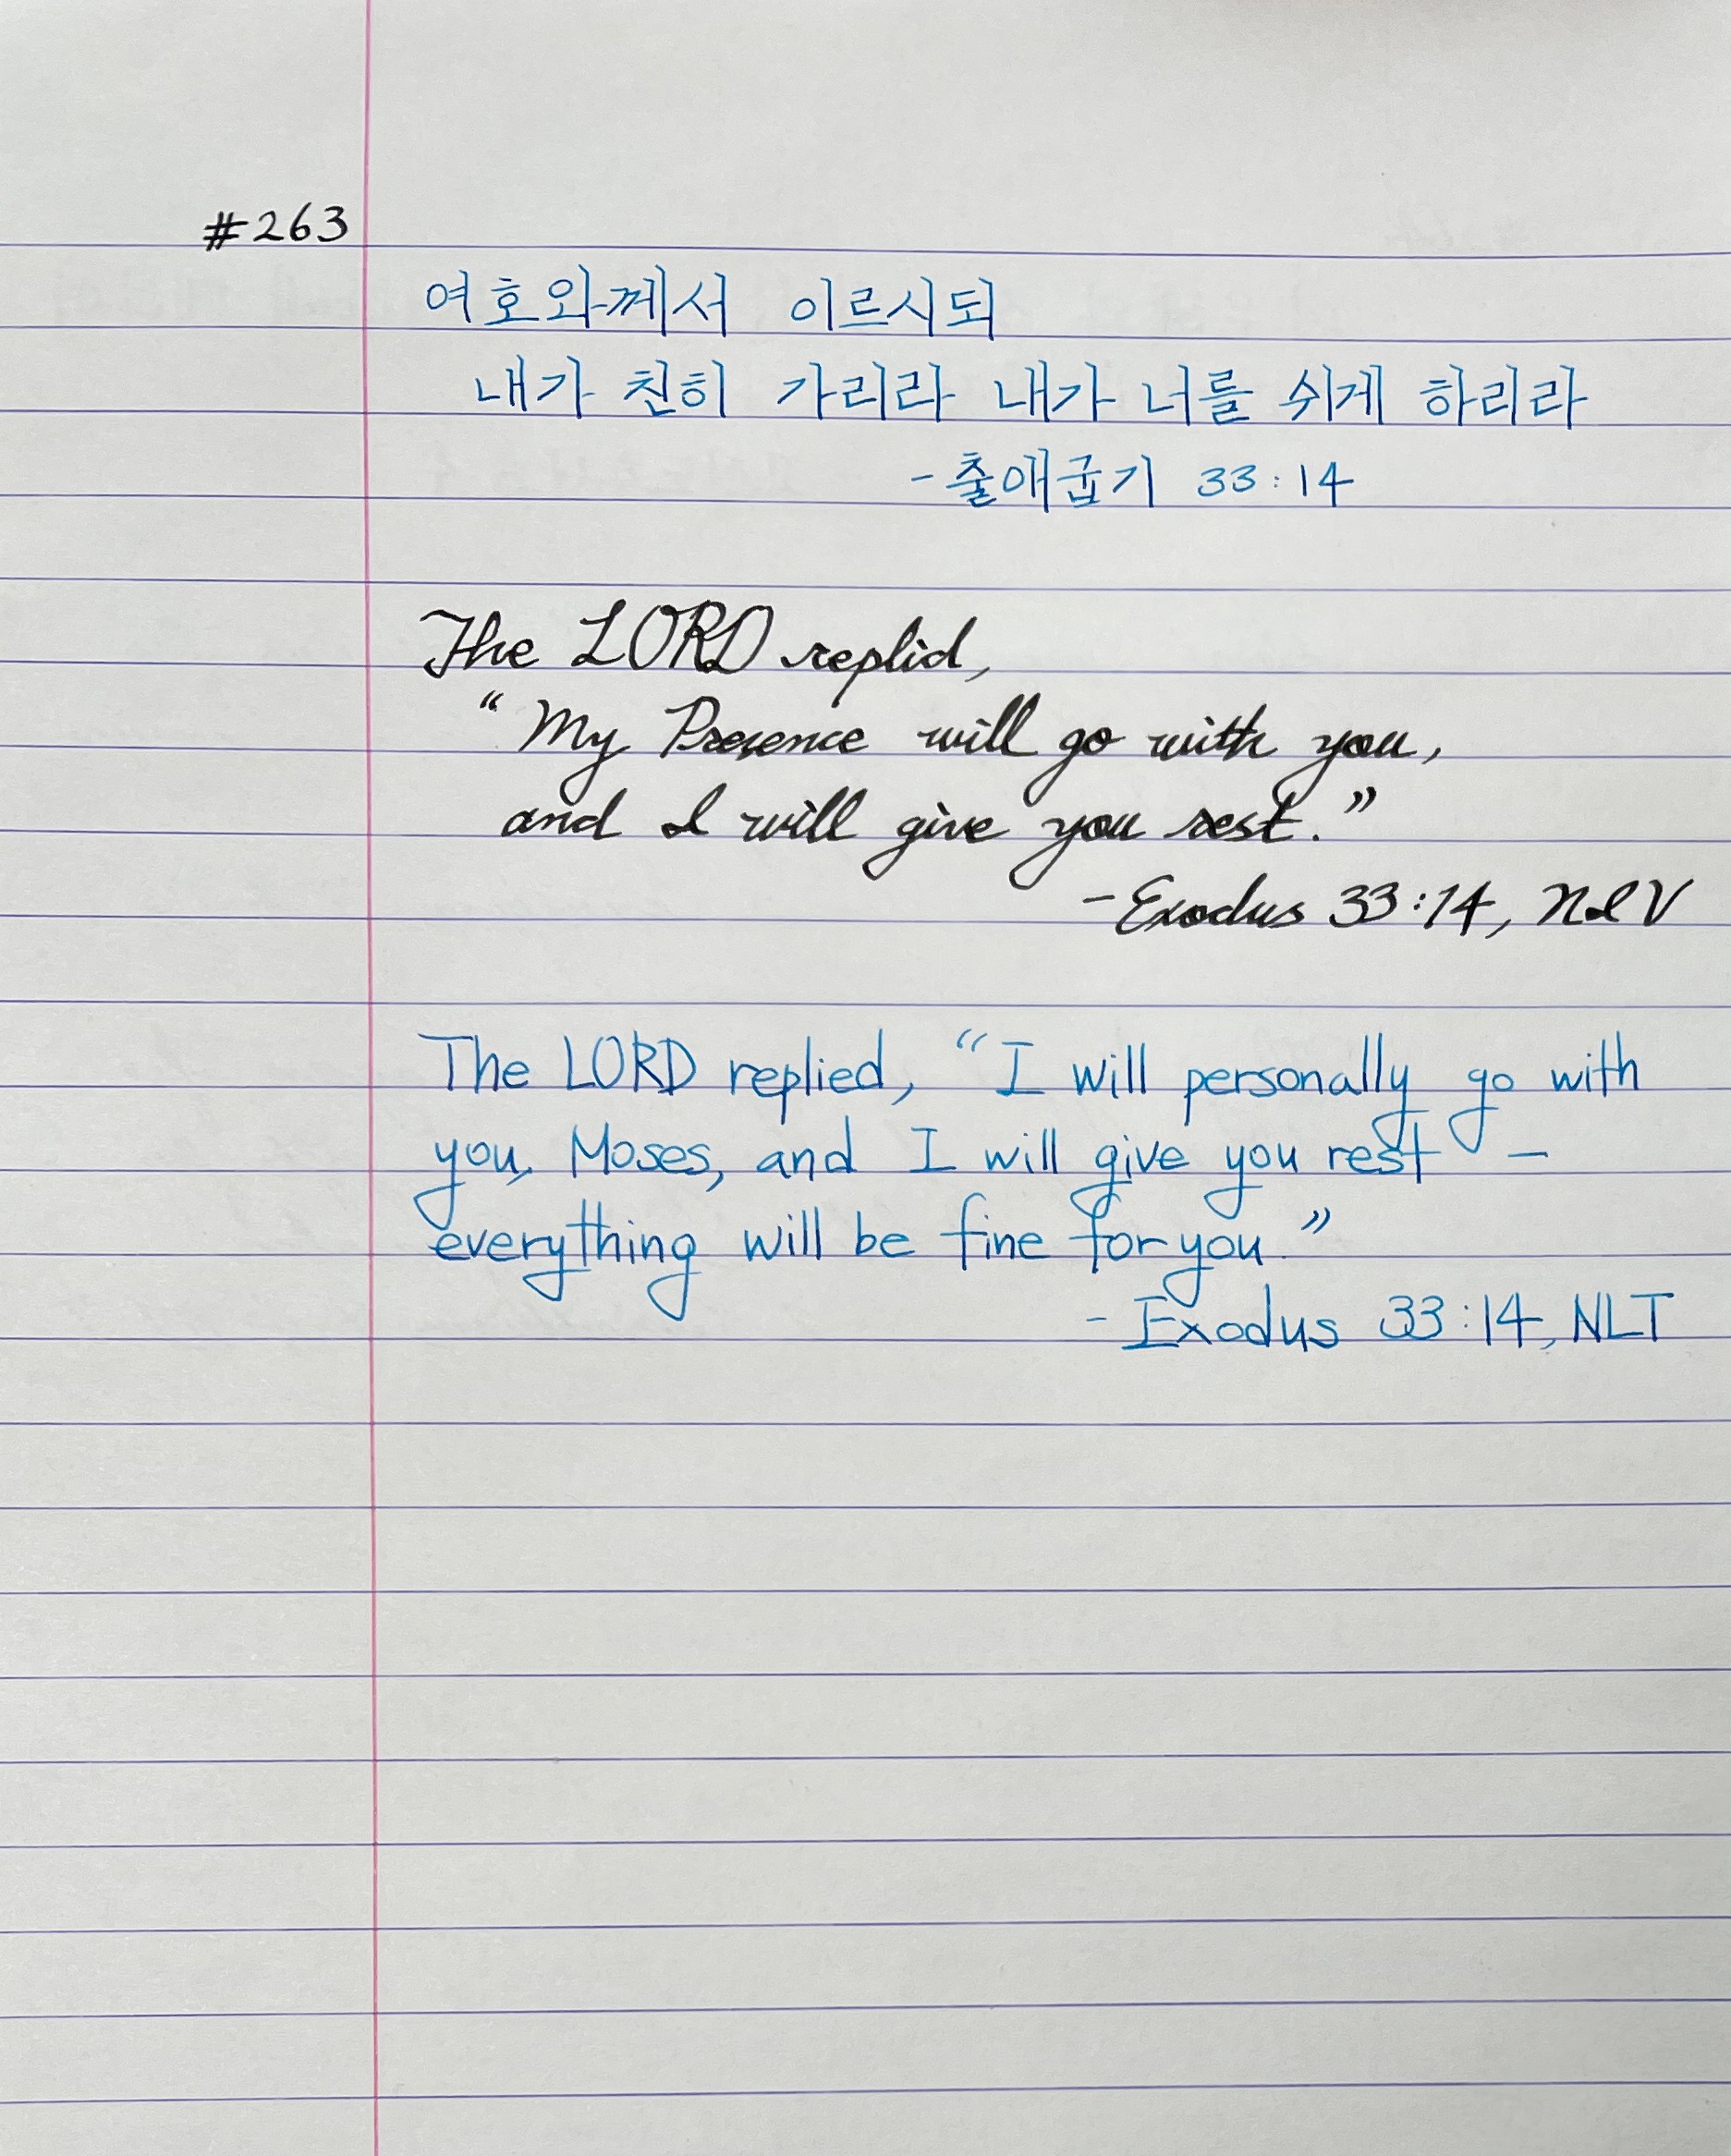 #263
여호와께서 이르시되
내가 친히 가리라 내가 너를 쉬게 하리라
- 출애굽기 33:14
The LORD replid,
“My Presence will go with you,
and I will give you rest.”
- Exodus 33:14, NIV
The LORD replied, “I will personally go with
you, Moses, and I will give you rest –
everything will be fine for you.”
- Exodus 33:14, NLT